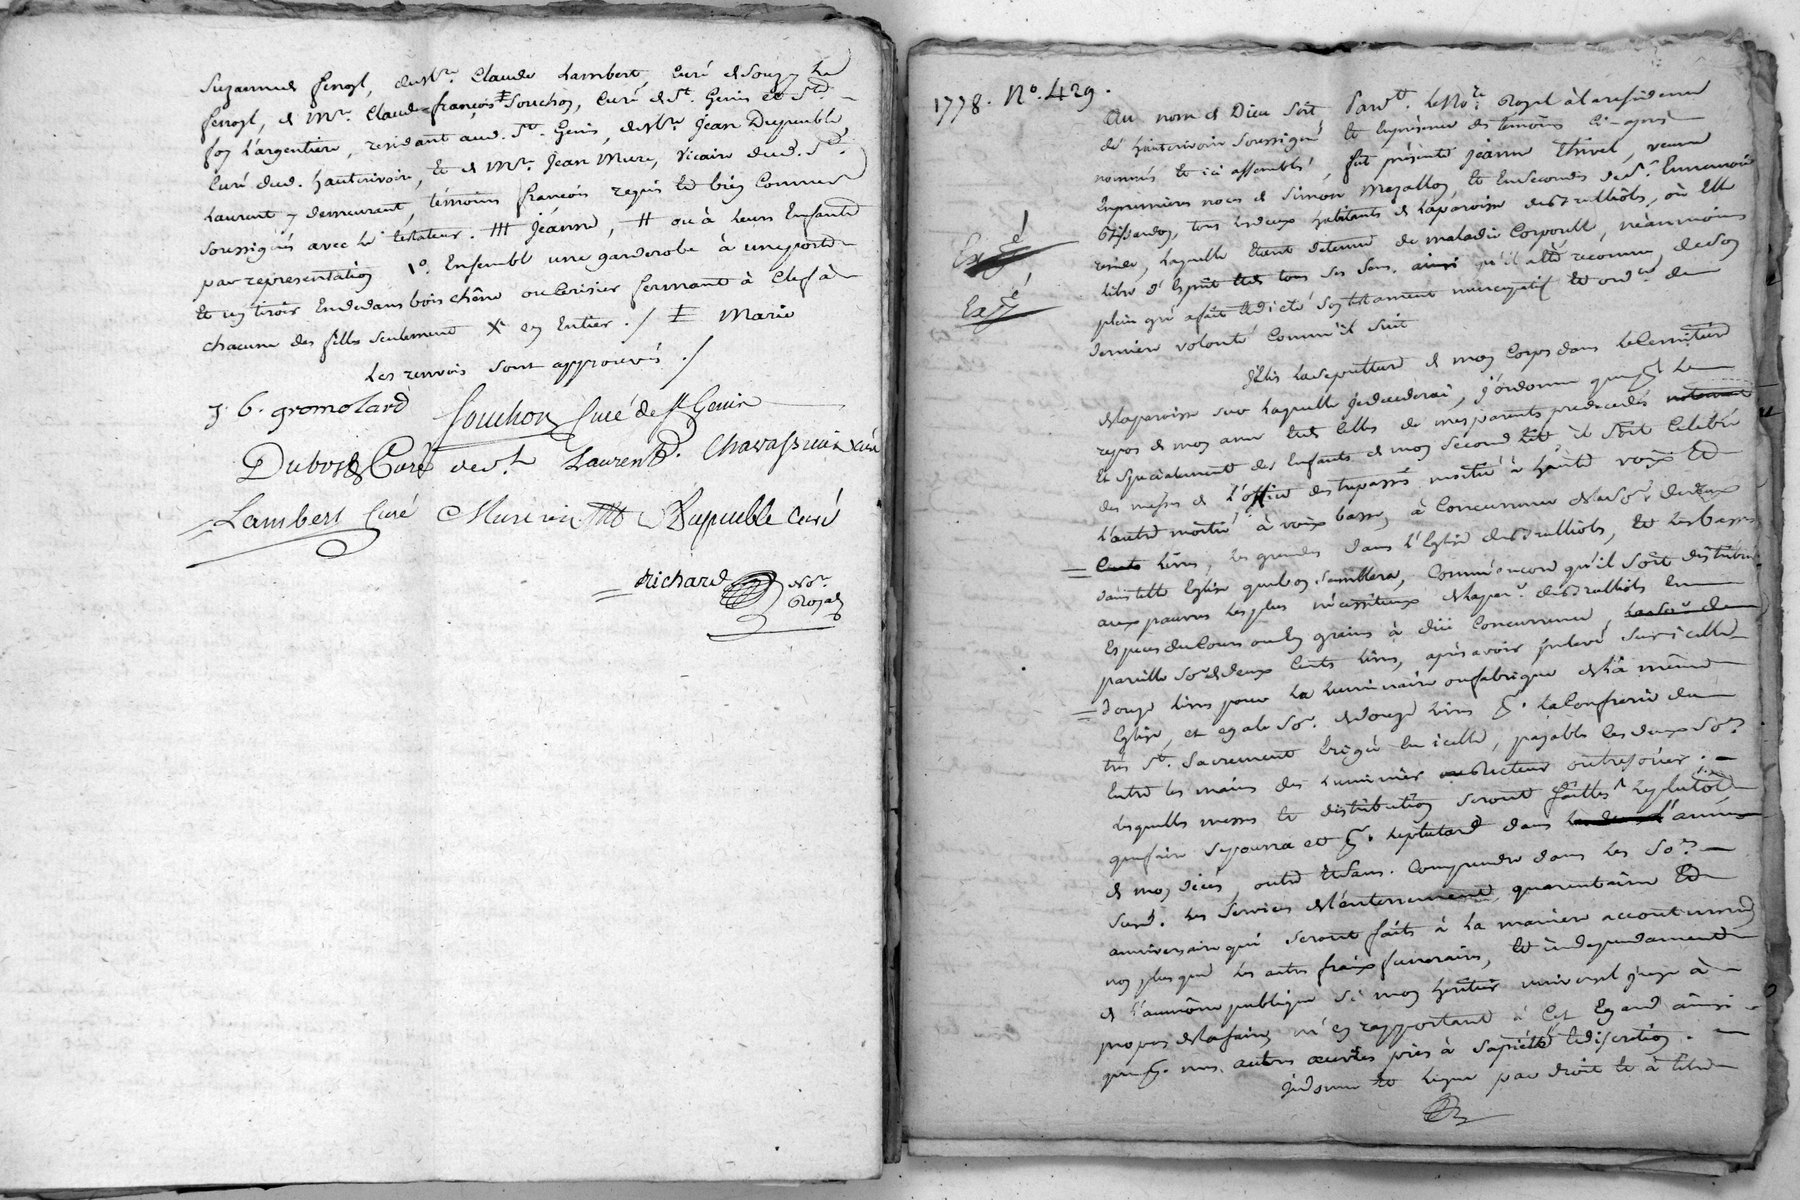 Suzanne feroyl, de Mre. Claude Lambert, Curé de Souzy
feroyl, de Mr. Claude-françois Souchon, Curé de St. Genis et Std.
foy L'argentiere, residant aud. St. Genis, de Mre Jean Dupuble
Curé dud. hauterivoire, et de Mre Jean Mure, vicaire dud. St.
Laurent y demeurant, témoins françois requis et bien Connus
soussignés avec le testateur. ## Jéanne, # ou à Leurs Enfants
par representation 1º. Ensemble une garderobe à une porte
et un tiroir Endedans bois chêne ou Cerisier fermant à Clef à
chacune des filles seulement X en Entier ./ ‡ Marie
Les renvois sont approuvés ./
J. B. gromolard Souchon Curé de St Genis
Dubost Curé de St Laurent. Chavassieux
Lambert Curé Mure vic. Dupuble Curé
Richard Nore.
Royal
1778. Nº. 429.
Au nom de Dieu soit, Pardt. Le Nore. Royal à la residence
de hauterivoire soussigné, et Enpresence des témoins Ci-après
nommés et ici assemblés, fut présente Jeanne thivel, veuve
Enpremieres noces de Simon Mazallon, et Ensecondes de Sr.
tous Lesdeux habitants de Laparoisse des halles, où Elle
reside, Laquelle Etant detenue de maladie Corporelle, néanmoins
Libre d'Esprit et de tous ses sens, ainsi qu'il a été reconnu, de son
plein gré a fait et dicté son testament nuncupatif et ordre. de
derniere volonté Comm'il suit
J'élis La sepulture de mon Corps dans Le Cemitiere
de Laparoisse sur Laquelle Jedecederai, j'ordonne que pr. Le
repos de mon ame et de Celles de mes parents predecedés
et Specialement des Enfants de mon second Lit, il soit Celebré
des messes de L'office des trepassés moitié à haute voix et
L'autre moitié à voix basse, à Concurrence de La Soe. de deux
Cents Livres, Les grandes dans L'Eglise des halles, et Les basses
dans telle Eglise que bon semblera, Comm'encore qu'il soit distribué
aux pauvres Les plus nécessiteux de Lapar. des halles En
Especes du Cours ou En grains à due Concurrence,
pareille Soe. de deux Cents Livres, après avoir prelevé sur icelle
douze Livres pour La Luminaire ou fabrique de La même
Eglise, et egale Soe. de douze Livres pr. La Confrerie du
très St. Sacrement Erigée En icelle, payables Les deux Soes.
Entre Les mains des Luminier ou Recteur
Lesquelles messes et distribution seront faittes Le plutôt
que faire se pourra et pr. Le plutard dans L'année
de mon décès, outre et sans Comprendre dans Les Soes.
susd. Les services de L'enterrement, quarantaine et
anniversaire qui seront faits à La maniere accoutumée
non plus que Les autres fraix funeraires, et independamment
de L'aumône publique si mon heritier universel juge à
propos de La faire, m'en rapportant à Cet Egard ainsi
que pr. mes autres oeuvres pies à sa pieté et discretion.
Je donne et Legue par droit et à titre